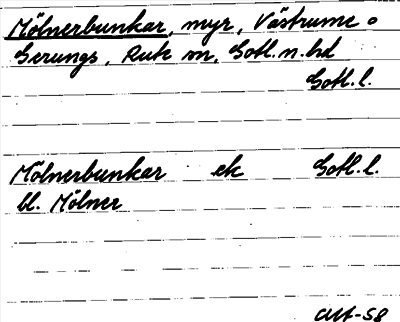 Mölnerbunkar, myr, Västrume o
Gerungs, Rute sn, Gotl. n. hd
Gotl. l.
Mölnerbunkar ek Gotl. l.
bl. Mölner
-58